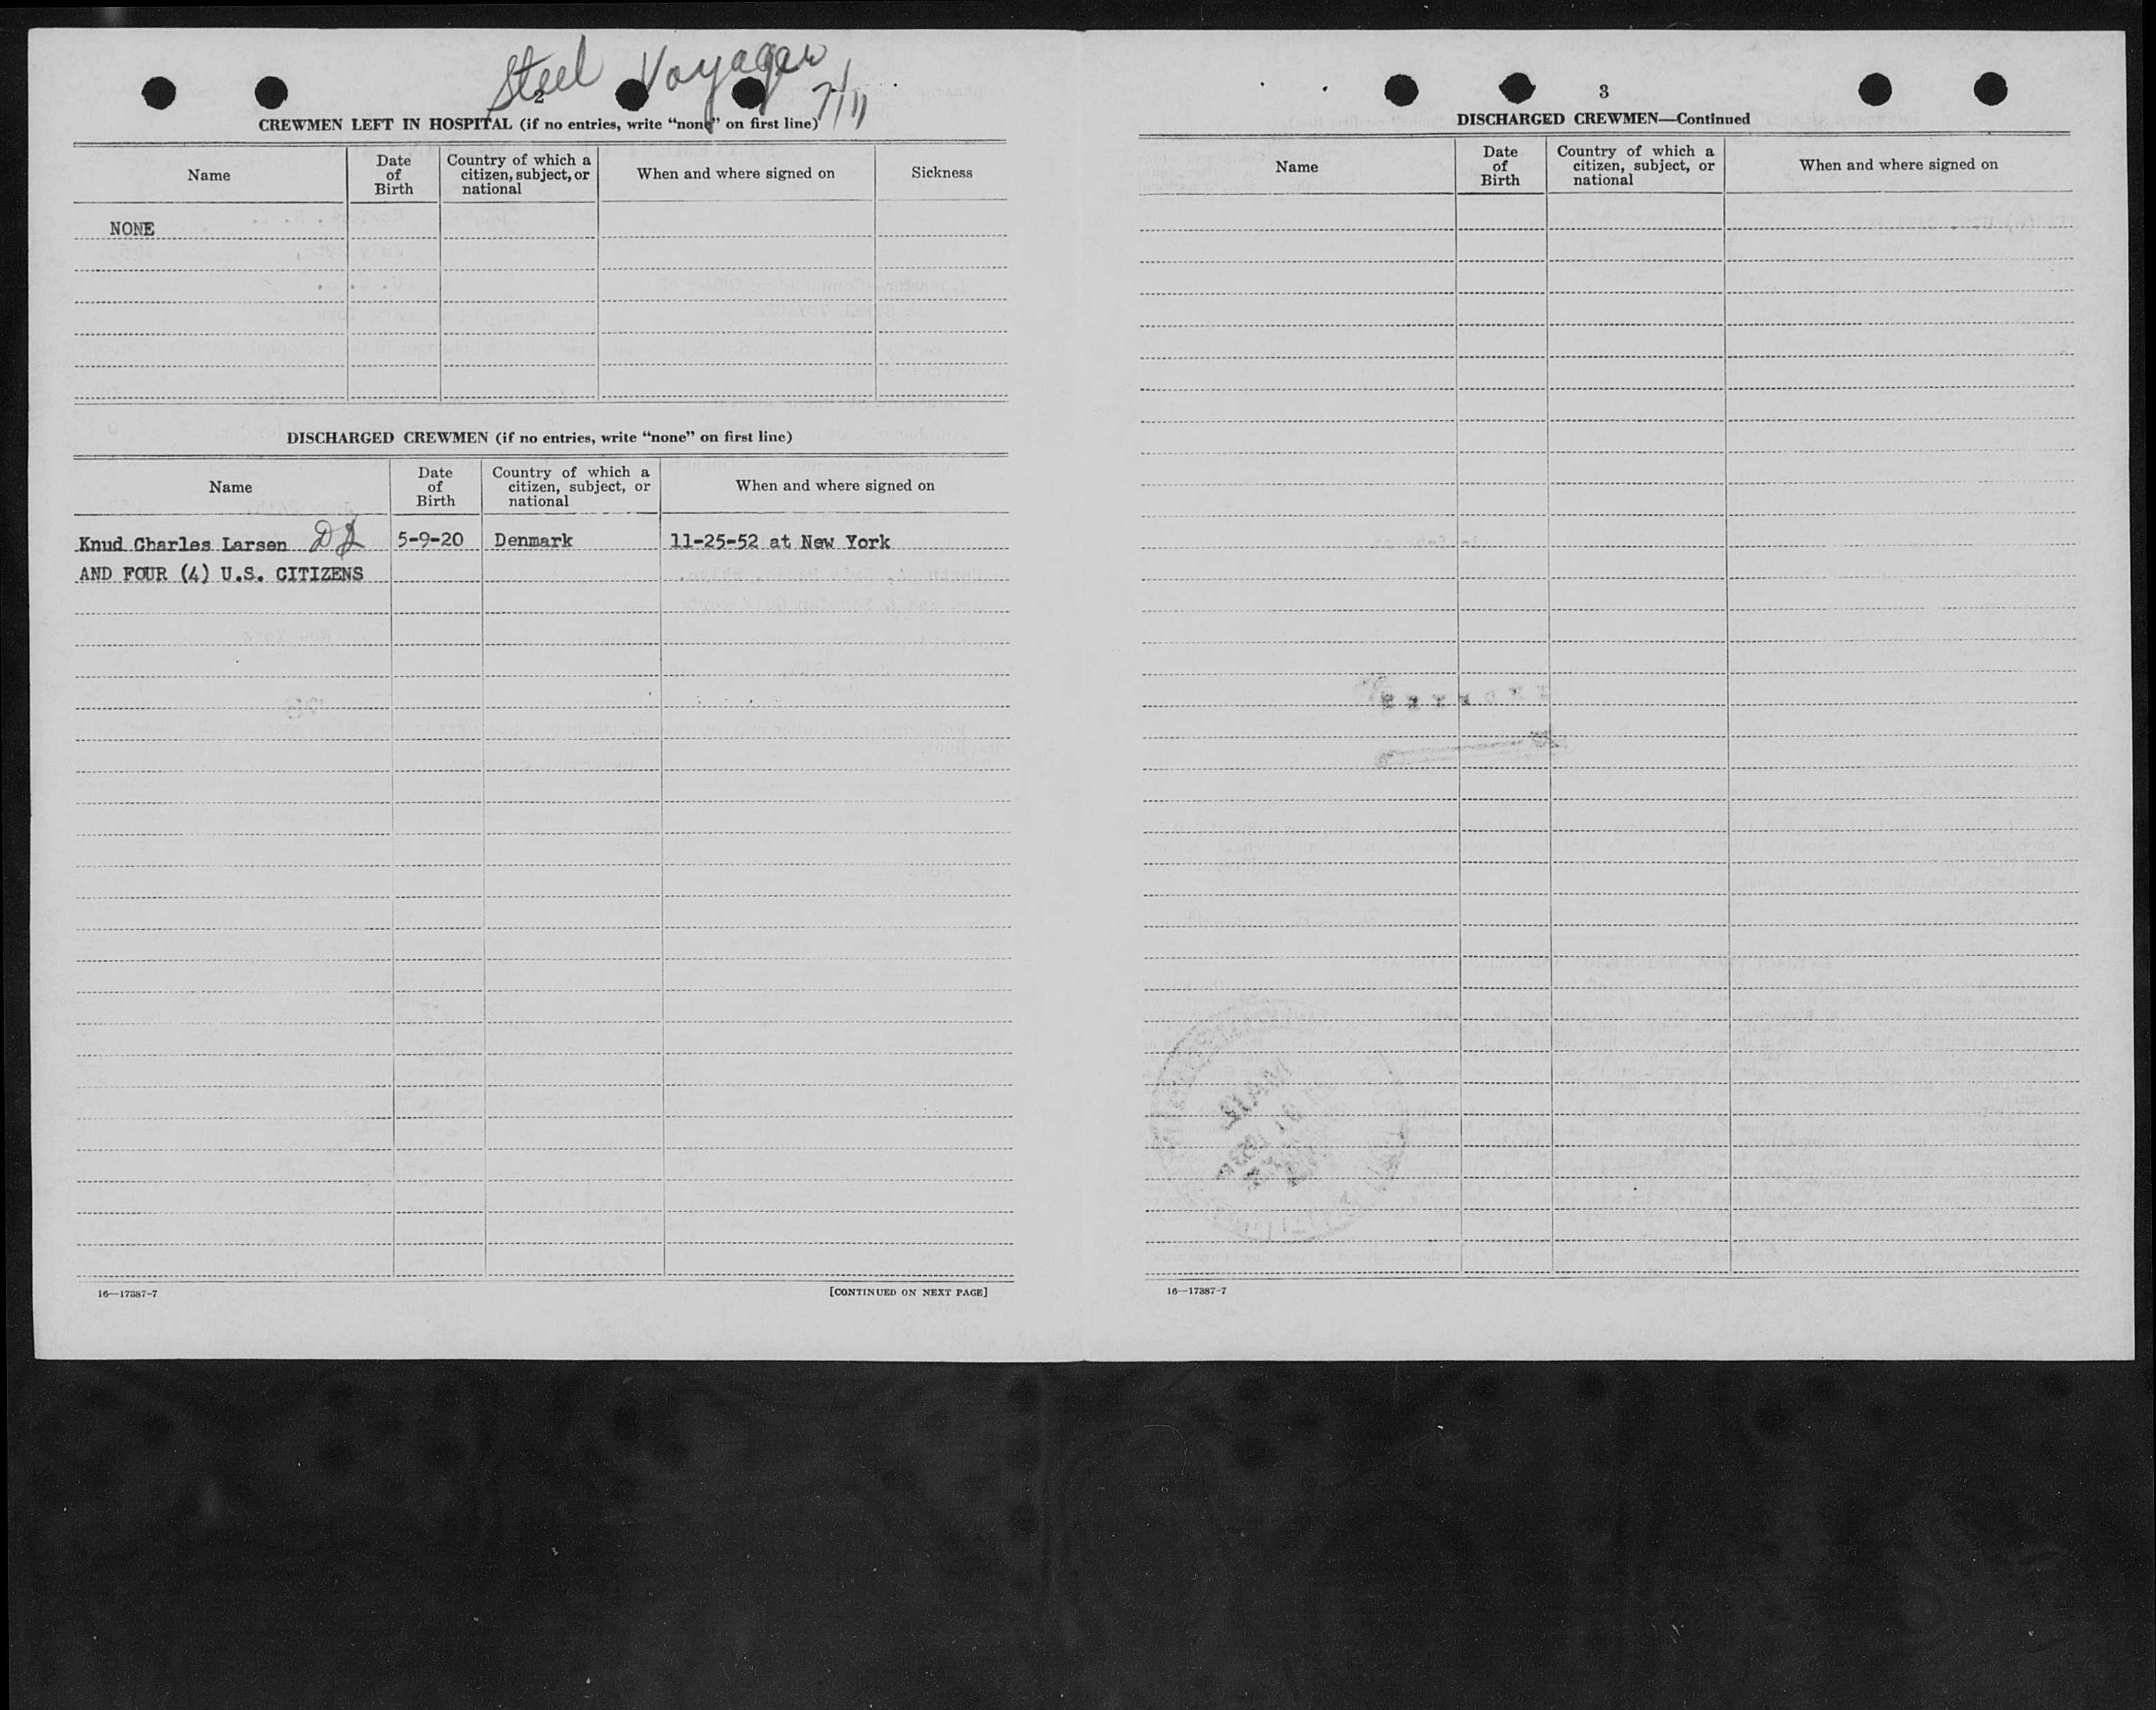 Steel Voyager
7/11
2
CREWMEN LEFT IN HOSPITAL (if no entries, write “none” on first line)
Name
Date of Birth
Country of which a citizen, subject, or national
When and where signed on
Sickness
NONE
DISCHARGED CREWMEN (if no entries, write “none” on first line)
Name
Date of Birth
Country of which a citizen, subject, or national
When and where signed on
Knud Charles Larsen 5-9-20 Denmark 11-25-52 at New York
AND FOUR (4) U.S. CITIZENS
16—17387-7
[CONTINUED ON NEXT PAGE]
3
DISCHARGED CREWMEN—Continued
Name
Date of Birth
Country of which a citizen, subject, or national
When and where signed on
16—17387-7